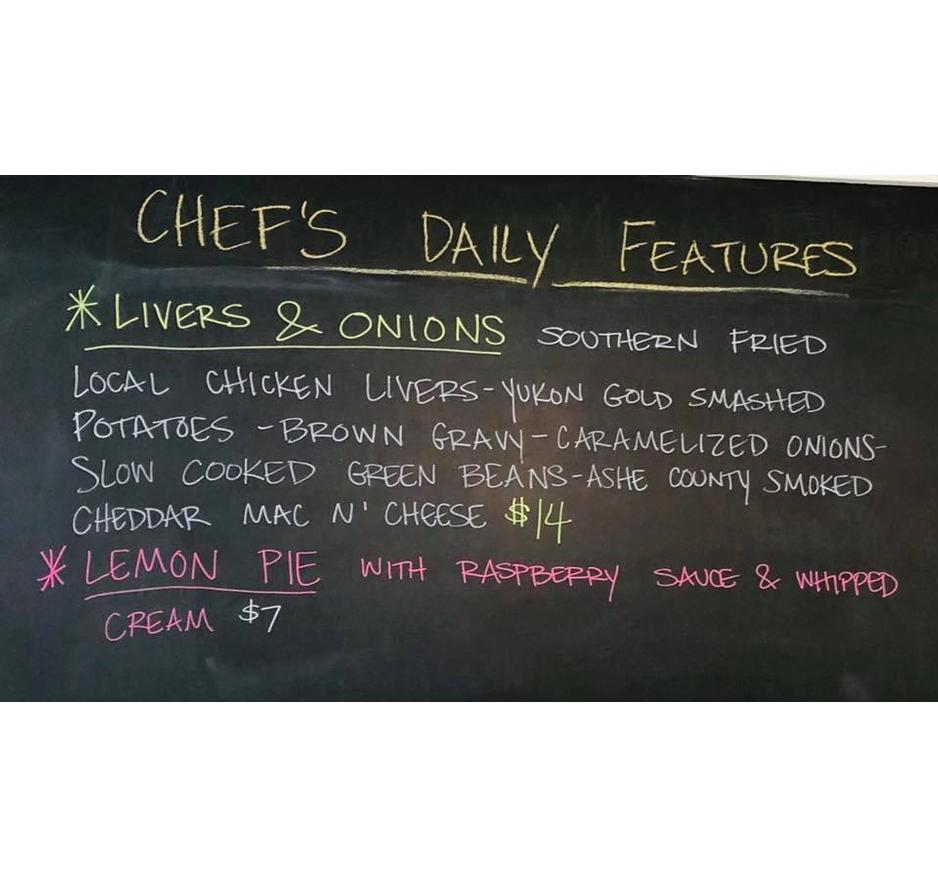 CHEF'S DAILY FEATURES
* LIVERS & ONIONS SOUTHERN FRIED
LOCAL CHICKEN LIVERS-YUKON GOLD SMASHED
POTATOES -BROWN GRAVY-CARAMELIZED ONIONS-
SLOW COOKED GREEN BEANS-ASHE COUNTY SMOKED
CHEDDAR MAC N' CHEESE $14
* LEMON PIE WITH RASPBERRY SAUCE & WHIPPED
CREAM $7